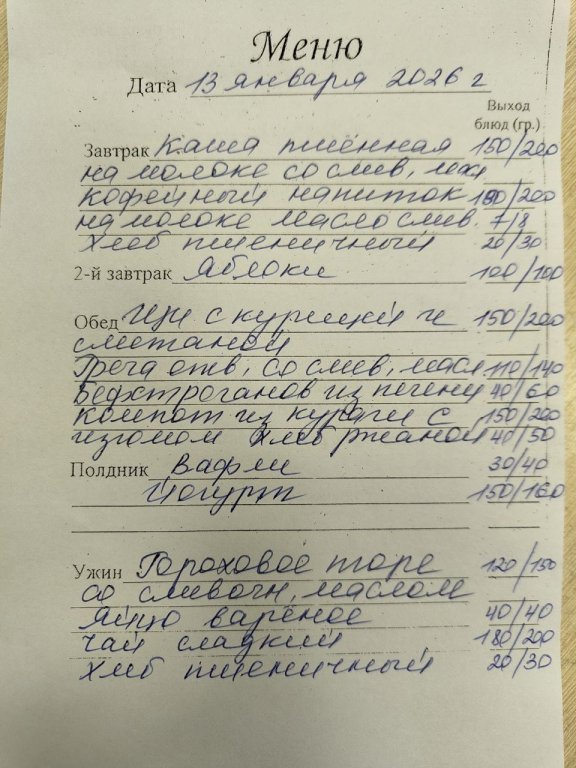 Меню
Дата 13 января 2026 г
Выход
блюд (гр.)
Завтрак Каша пшённая 150/200
на молоке со слив,
кофейный напиток 150/200
на молоке масло слив. 7/8
хлеб пшеничный 20/30
2-й завтрак Яблоки 100/100
Обед Щи с курицей и 150/200
сметаной
Греча отв, со слив, масл 110/140
Бефстроганов из печени 40/60
компот из кураги с 150/200
изюмом хлеб ржаной 40/50
Полдник Вафли 30/40
Йогурт 150/160
Ужин Гороховое пюре 120/150
со сливочн, маслом
яйцо варёное 40/40
чай сладкий 180/200
хлеб пшеничный 20/30